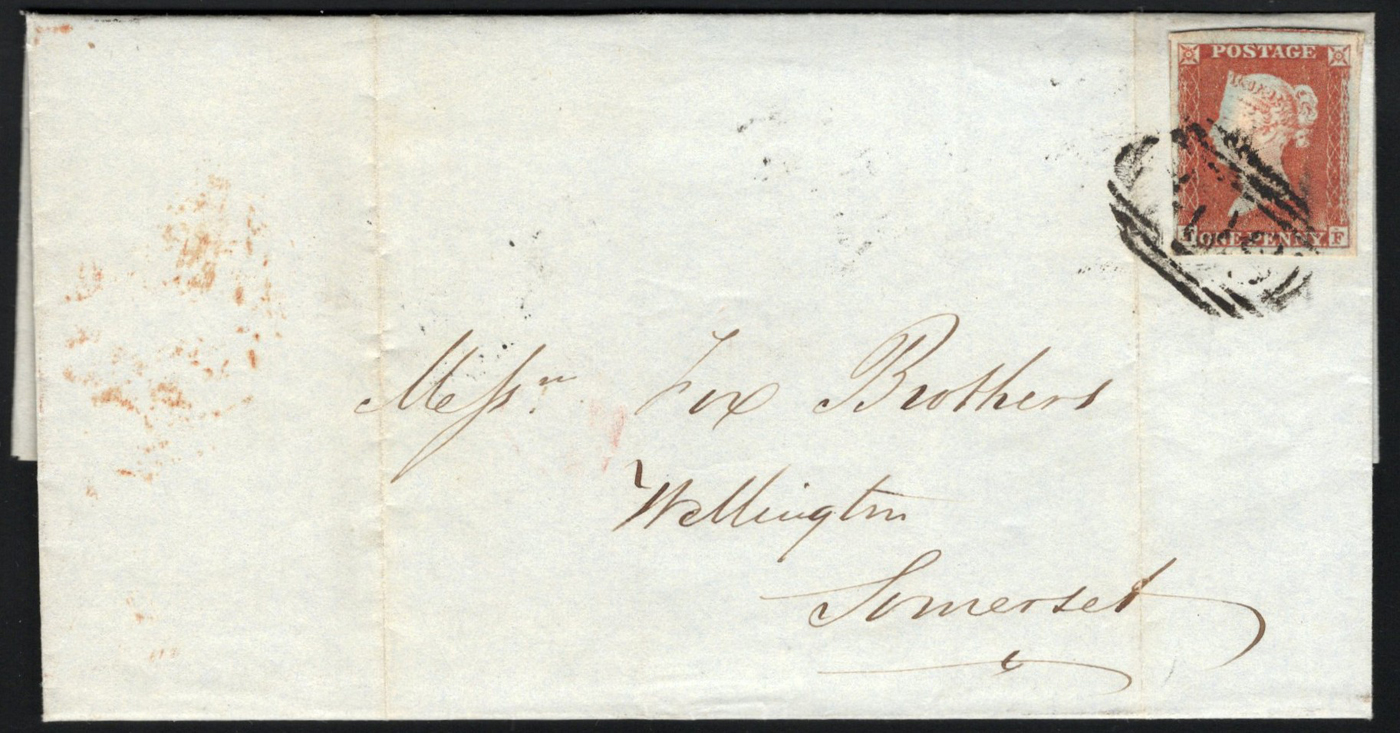 POSTAGE
ONE PENNY F
Messrs. Fox Brothers
Wellington
Somerset